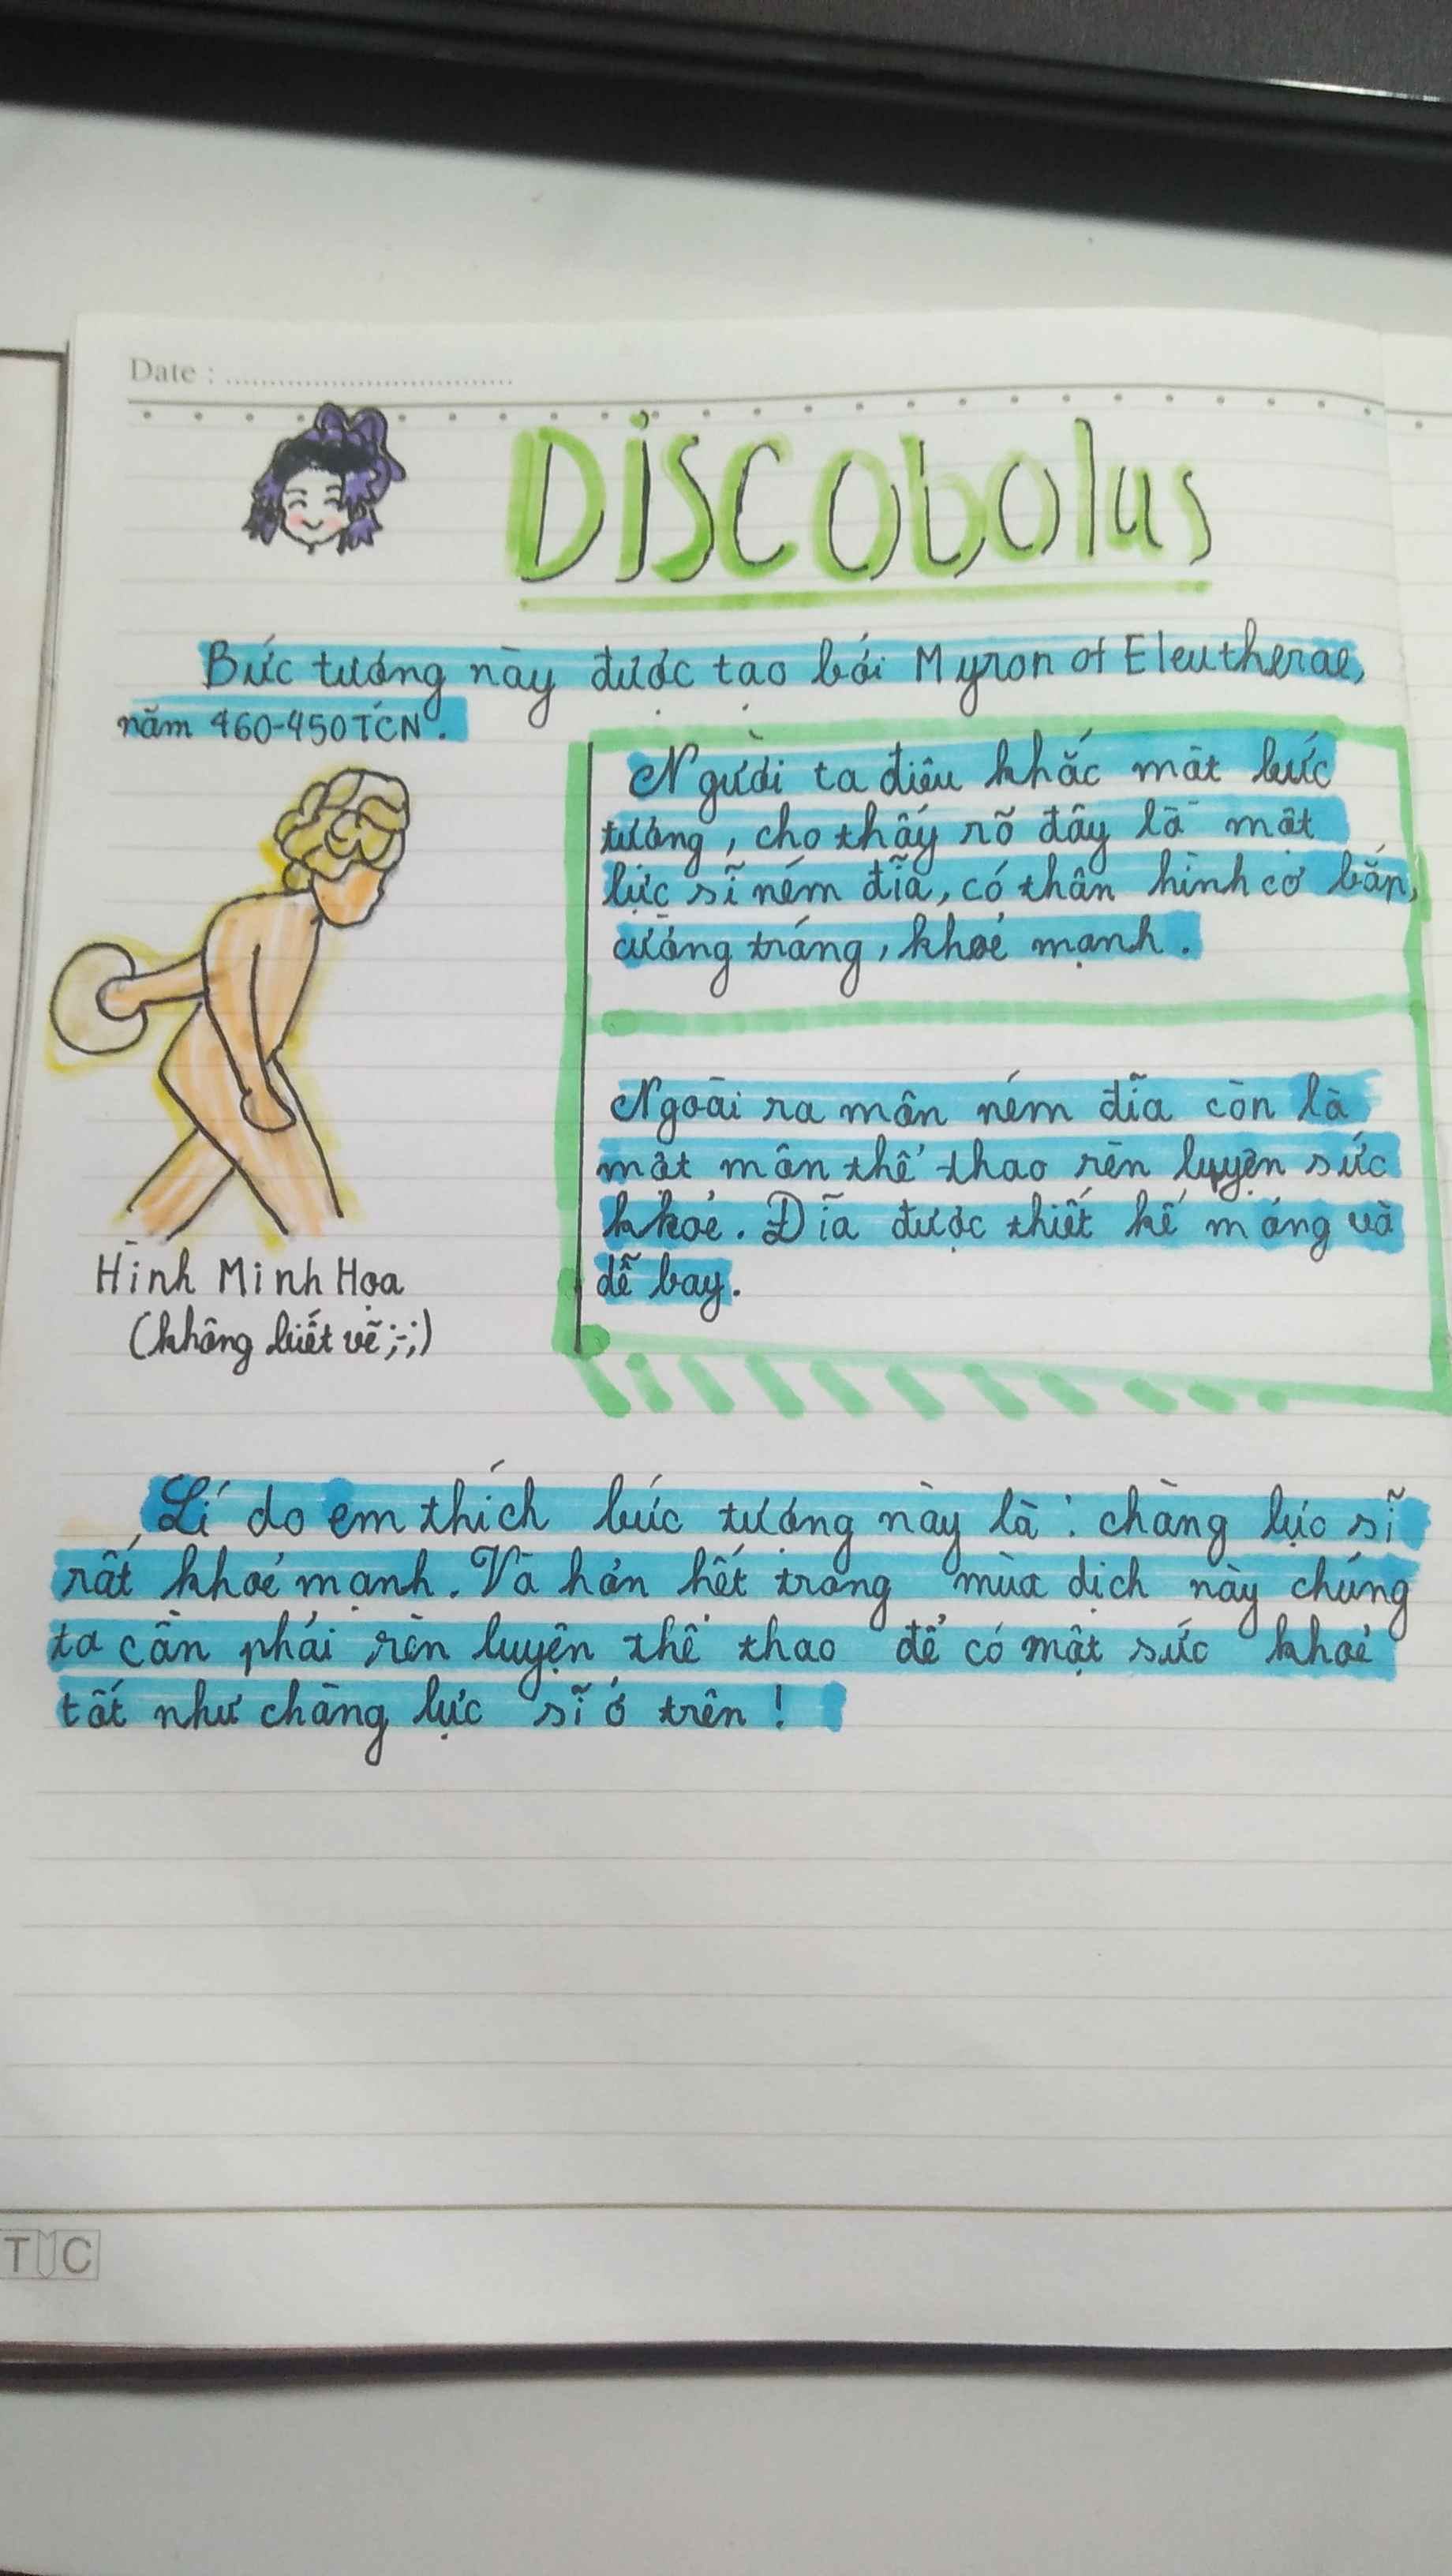 Date :
Discobolus
Bức tượng này được tạo bởi Myron of Eleutherae,
năm 460-450TCN.
Người ta điêu khắc một bức
tượng, cho thấy rõ đây là một
lực sĩ ném đĩa, có thân hình cơ bắp,
cường tráng, khoẻ mạnh.
Ngoài ra môn ném đĩa còn là
một môn thể thao rèn luyện sức
khoẻ. Đĩa được thiết kế mỏng và
dễ bay.
Hình Minh Họa
(không biết vẽ ;-;)
Lí do em thích bức tượng này là : chàng lực sĩ
rất khoẻ mạnh. Và hơn hết trong mùa dịch này chúng
ta cần phải rèn luyện thể thao để có một sức khoẻ
tốt như chàng lực sĩ ở trên !
TUC